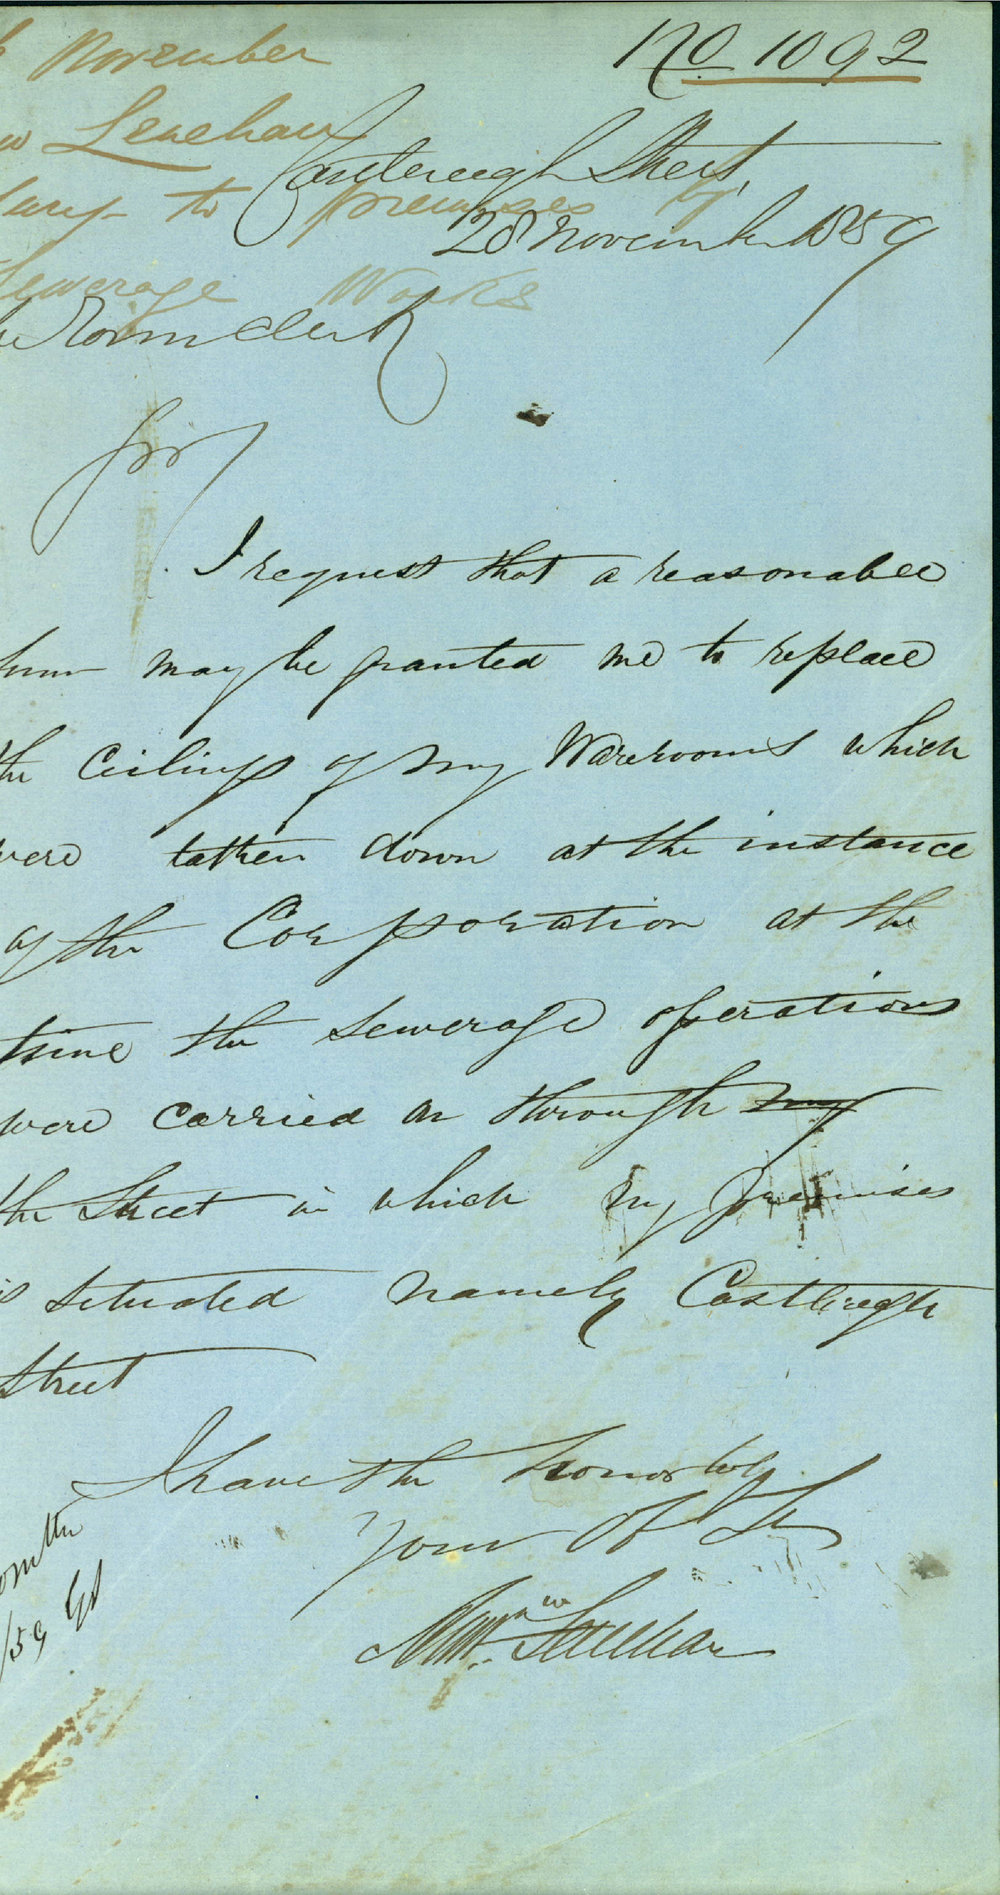 No 1092
November
Lenehan
to premises by
Sewerage Works
Castlereagh Street,
28 November 1859
Town Clerk
Sir
I request that a reasonable
sum may be granted me to replace
the Ceilings of my Warerooms which
were tathen down at the instance
of the Corporation at the
time the sewerage operations
were carried on through my
the Street in which my premises
is situated namely Castlereagh
Street
I have the honor to be
Your Ob St
Lenehan
/59